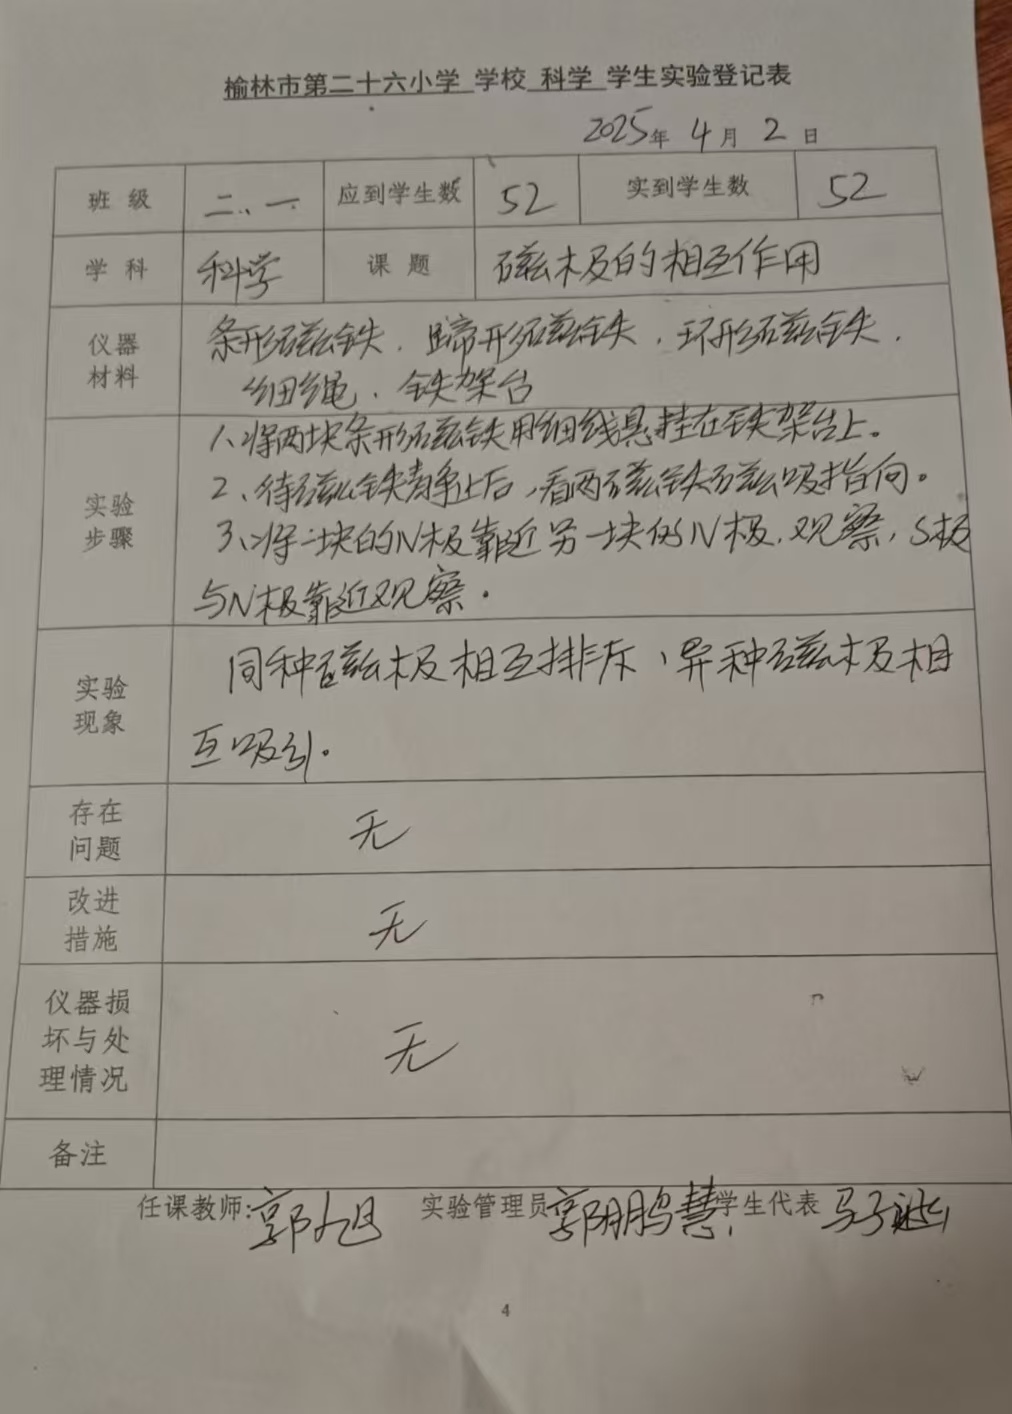 榆林市第二十六小学 学校 科学 学生实验登记表
2025年 4月 2日
班级 二、一 应到学生数 52 实到学生数 52
学科 科学 课题 磁极的相互作用
仪器材料 条形磁铁、蹄形磁铁、环形磁铁、
细绳、铁架台
实验步骤 1、将两块条形磁铁用细线悬挂在铁架台上。
2、待磁铁静止后,看两磁铁磁吸指向。
3、将一块的N极靠近另一块的N极,观察,S极
与N极靠近观察。
实验现象 同种磁极相互排斥、异种磁极相
互吸引。
存在问题 无
改进措施 无
仪器损坏与处理情况 无
备注
任课教师:郭旭 实验管理员 郭鹏慧 学生代表 马子
4